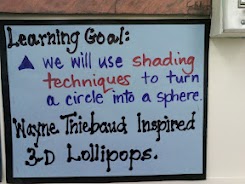 Learning Goal:
▲ we will use shading
techniques to turn
a circle into a sphere.
Wayne Thiebaud Inspired
3-D Lollipops.